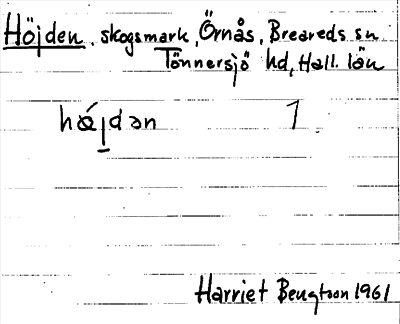 Höjden, skogsmark, Örnås, Breareds sn
Tönnersjö hd, Hall. län
hǿjdən 1
Harriet Bengtson 1961